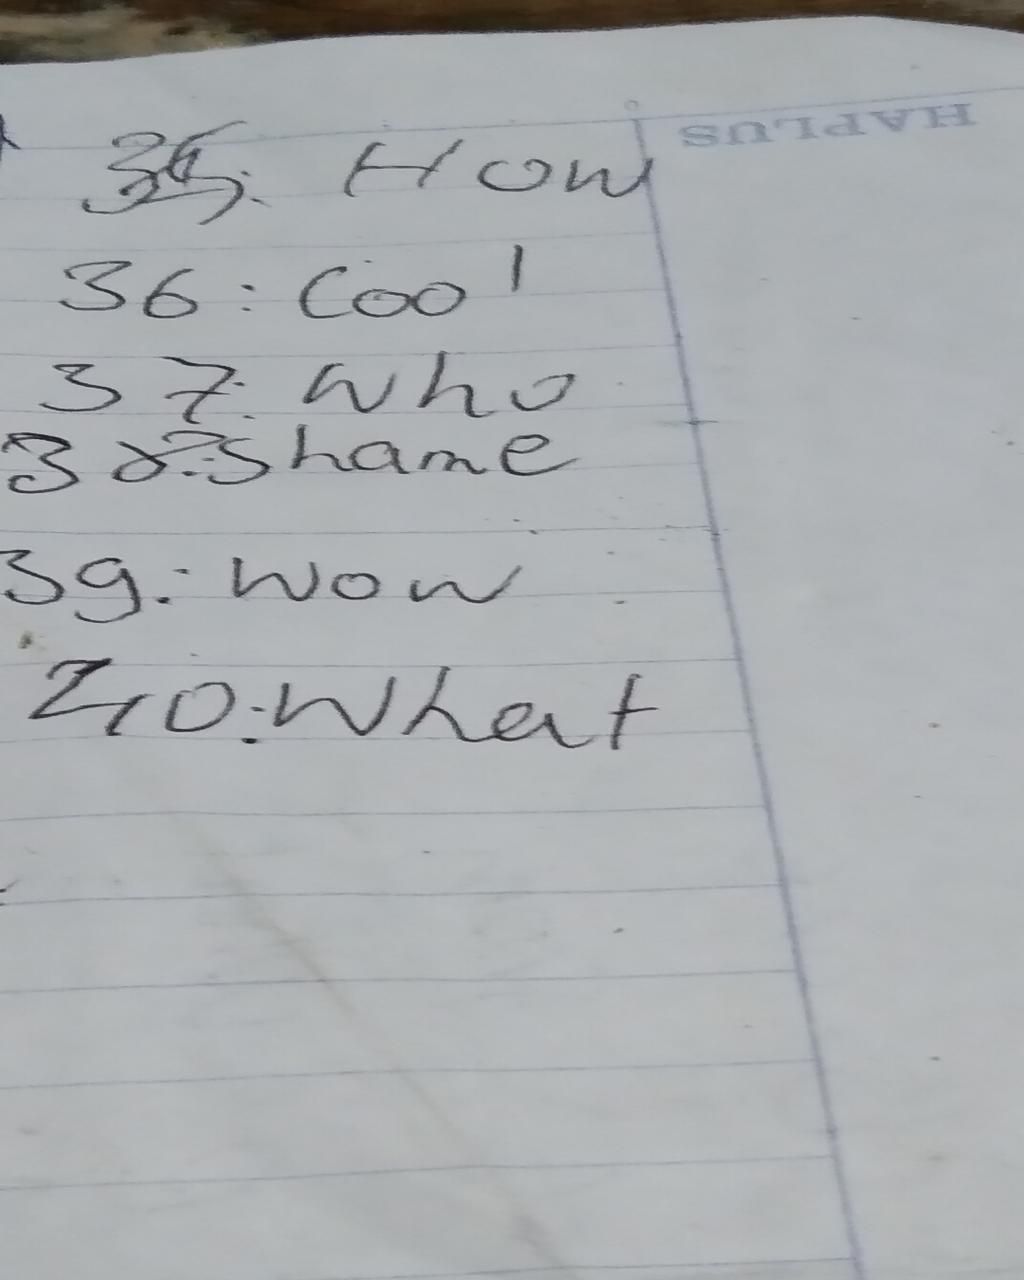 HAPLUS
35: How
36: Cool
37: Who
38: Shame
39: Wow
40: What